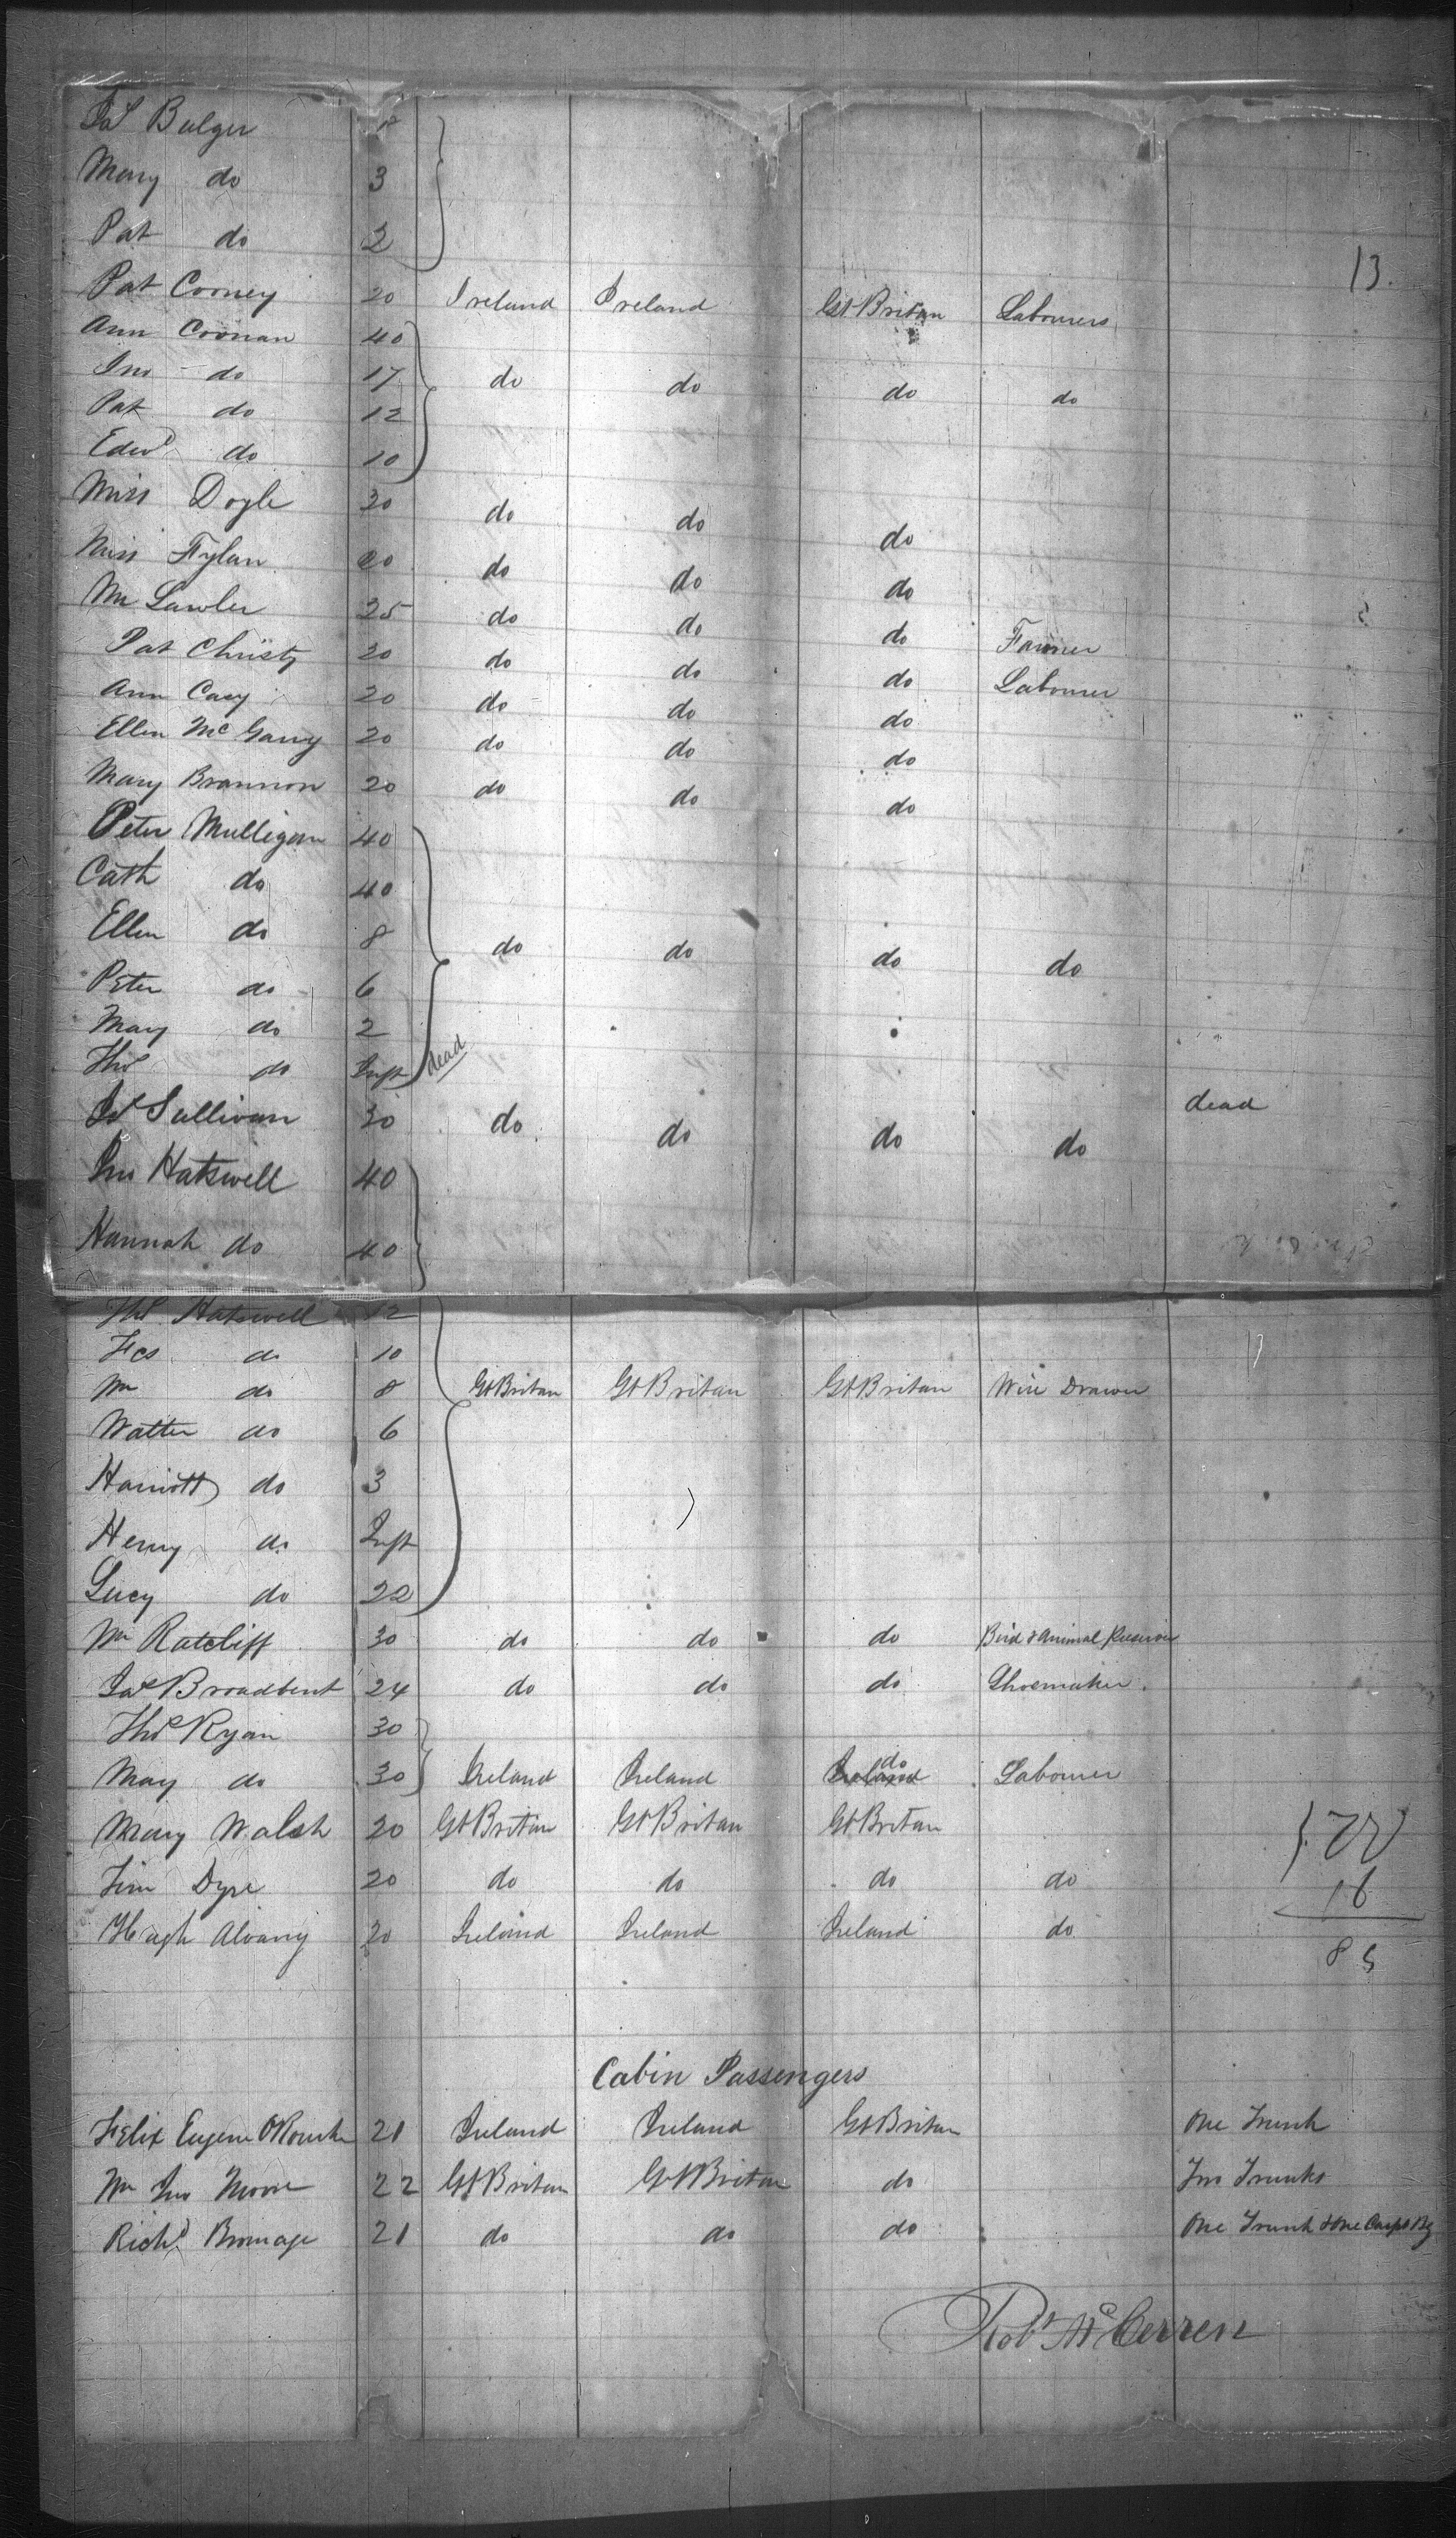 Jas Bulger
Mary do 3
Pat do 2
13.
Pat Cooney 20 Ireland Ireland Gt Britan Labourers
Ann Coonan 40
Jno do 17 do do do do
Pat do 12
Edwd do 10
Miss Doyle 30 do do do
Miss Fylan 20 do do do
Wm Lawler 25 do do do Farmer
Pat Christy 20 do do do Labourer
Ann Cary 20 do do do
Ellen McGarry 20 do do do
Mary Brannon 20 do do do
Peter Mulligan 40
Cath do 40
Ellen do 8 do do do do
Peter do 6
Mary do 2
Thos do Inft dead
Jas Sullivan 30 do do do do dead
Jno Hatswell 40
Hannah do 40
Thos Hatswell 12
Fcs do 10
Wm do 8 Gt Britan Gt Britan Gt Britan Wire Drawer
Walter do 6
Harriott do 3
Henry do Inft
Lucy do 22
Wm Ratcliff 30 do do do Bird & Animal
Jas Broadbent 24 do do do Shoemaker
Thos Ryan 30
Mary do 30 Ireland Ireland Ireland do Labourer
Mary Walsh 20 Gt Britan Gt Britan Gt Britan
Jim Dyre 20 do do do do
Hugh Alvany 20 Ireland Ireland Ireland do
16
85
Cabin Passengers
Felix Eugene O'Rourke 21 Ireland Ireland Gt Britan One Trunk
Wm Jno Moore 22 Gt Britan Gt Britan do Two Trunks
Richd Bromage 21 do do do One Trunk & One Carpt Bg
Robt McCerren